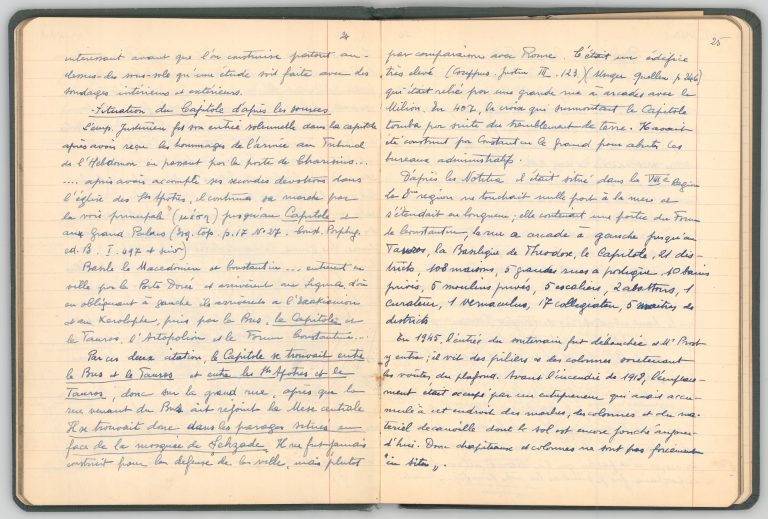 24
interessant avant que l'on construise partout au-
dessus des sous-sols qu'une étude soit faite avec des
sondages intérieurs et extérieurs.
Situation du Capitole d'après les sources
L'emp. Justinien fit son entrée solennelle dans la capitale
après avoir reçu les hommages de l'armée au Tribunal
de l'Hebdomon en passant par la porte de Charisius...
.... après avoir accompli ses secondes dévotions dans
l'église des Sts Apotres, il continua sa marche par
la voie principale (μέση) jusqu'au Capitole et
aux Grand Palais (top. p. 17 N° 27. Const. Porphyg.
ed. B. I. 497 et suiv)
Basile le Macedonien et Constantin ... entrent en
ville par la Porte Dorée et arrivèrent au Sigma, d'où
en obliquant à gauche ils arrivèrent à l'Exakionion
et au Xerolophe, puis par le Bus, le Capitole et
le Tauros, l'Artopolion et le Forum Constantin...
Par ces deux citation, le Capitole se trouvait entre
le Bus et le Tauros et entre les Sts Apotres et le
Tauros, donc sur la grand rue, après que la
rue venant du Bus ait rejoint la Mese centrale
Il se trouvait donc dans les parages situés en
face de la mosquée de Sehzade. Il ne fut jamais
construit pour la défense de la ville, mais plutot
25
par comparaison avec Rome. C'était un édifice
très elevé (Corippus. Justin III. 123) (Unger Quellen p 246)
qui était relié par une grande rue à arcades avec le
Milion. En 407, la croix qui surmontait le Capitole
tomba par suite du tremblement de terre. Il avait
été construit par Constantin le Grand pour abriter les
bureaux administratifs.
D'après les Notitia il était situé dans la VIIIe Region
la region ne touchait nulle part à la mer et
s'étendait en longueur; elle contenait une partie du Forum
de Constantin, la rue à arcade à gauche jusqu'au
Tauros, la Basilique de Theodose, le Capitole, 21 dis-
tricts, 108 maisons, 5 grandes rues à portique 10 bains
privés, 5 moulins privés, 5 escaliers, 2 abattoirs, 1
curateur, 1 vernaculus, 17 collegiaten, 5 maitres de
districts
En 1945, l'entrée du souterrain fut débouchée et Mr
y entra; il vit des piliers et des colonnes soutenant
les voûtes du plafond. Avant l'incendie de 1918, l'emplace-
ment était occupé par un entrepreneur qui avait accu-
mulé à cet endroit des marbres, des colonnes et du ma-
tériel decauville dont le sol est encore jonché aujour-
d'hui. Donc chapiteaux et colonnes ne sont pas forcement
"in situ".